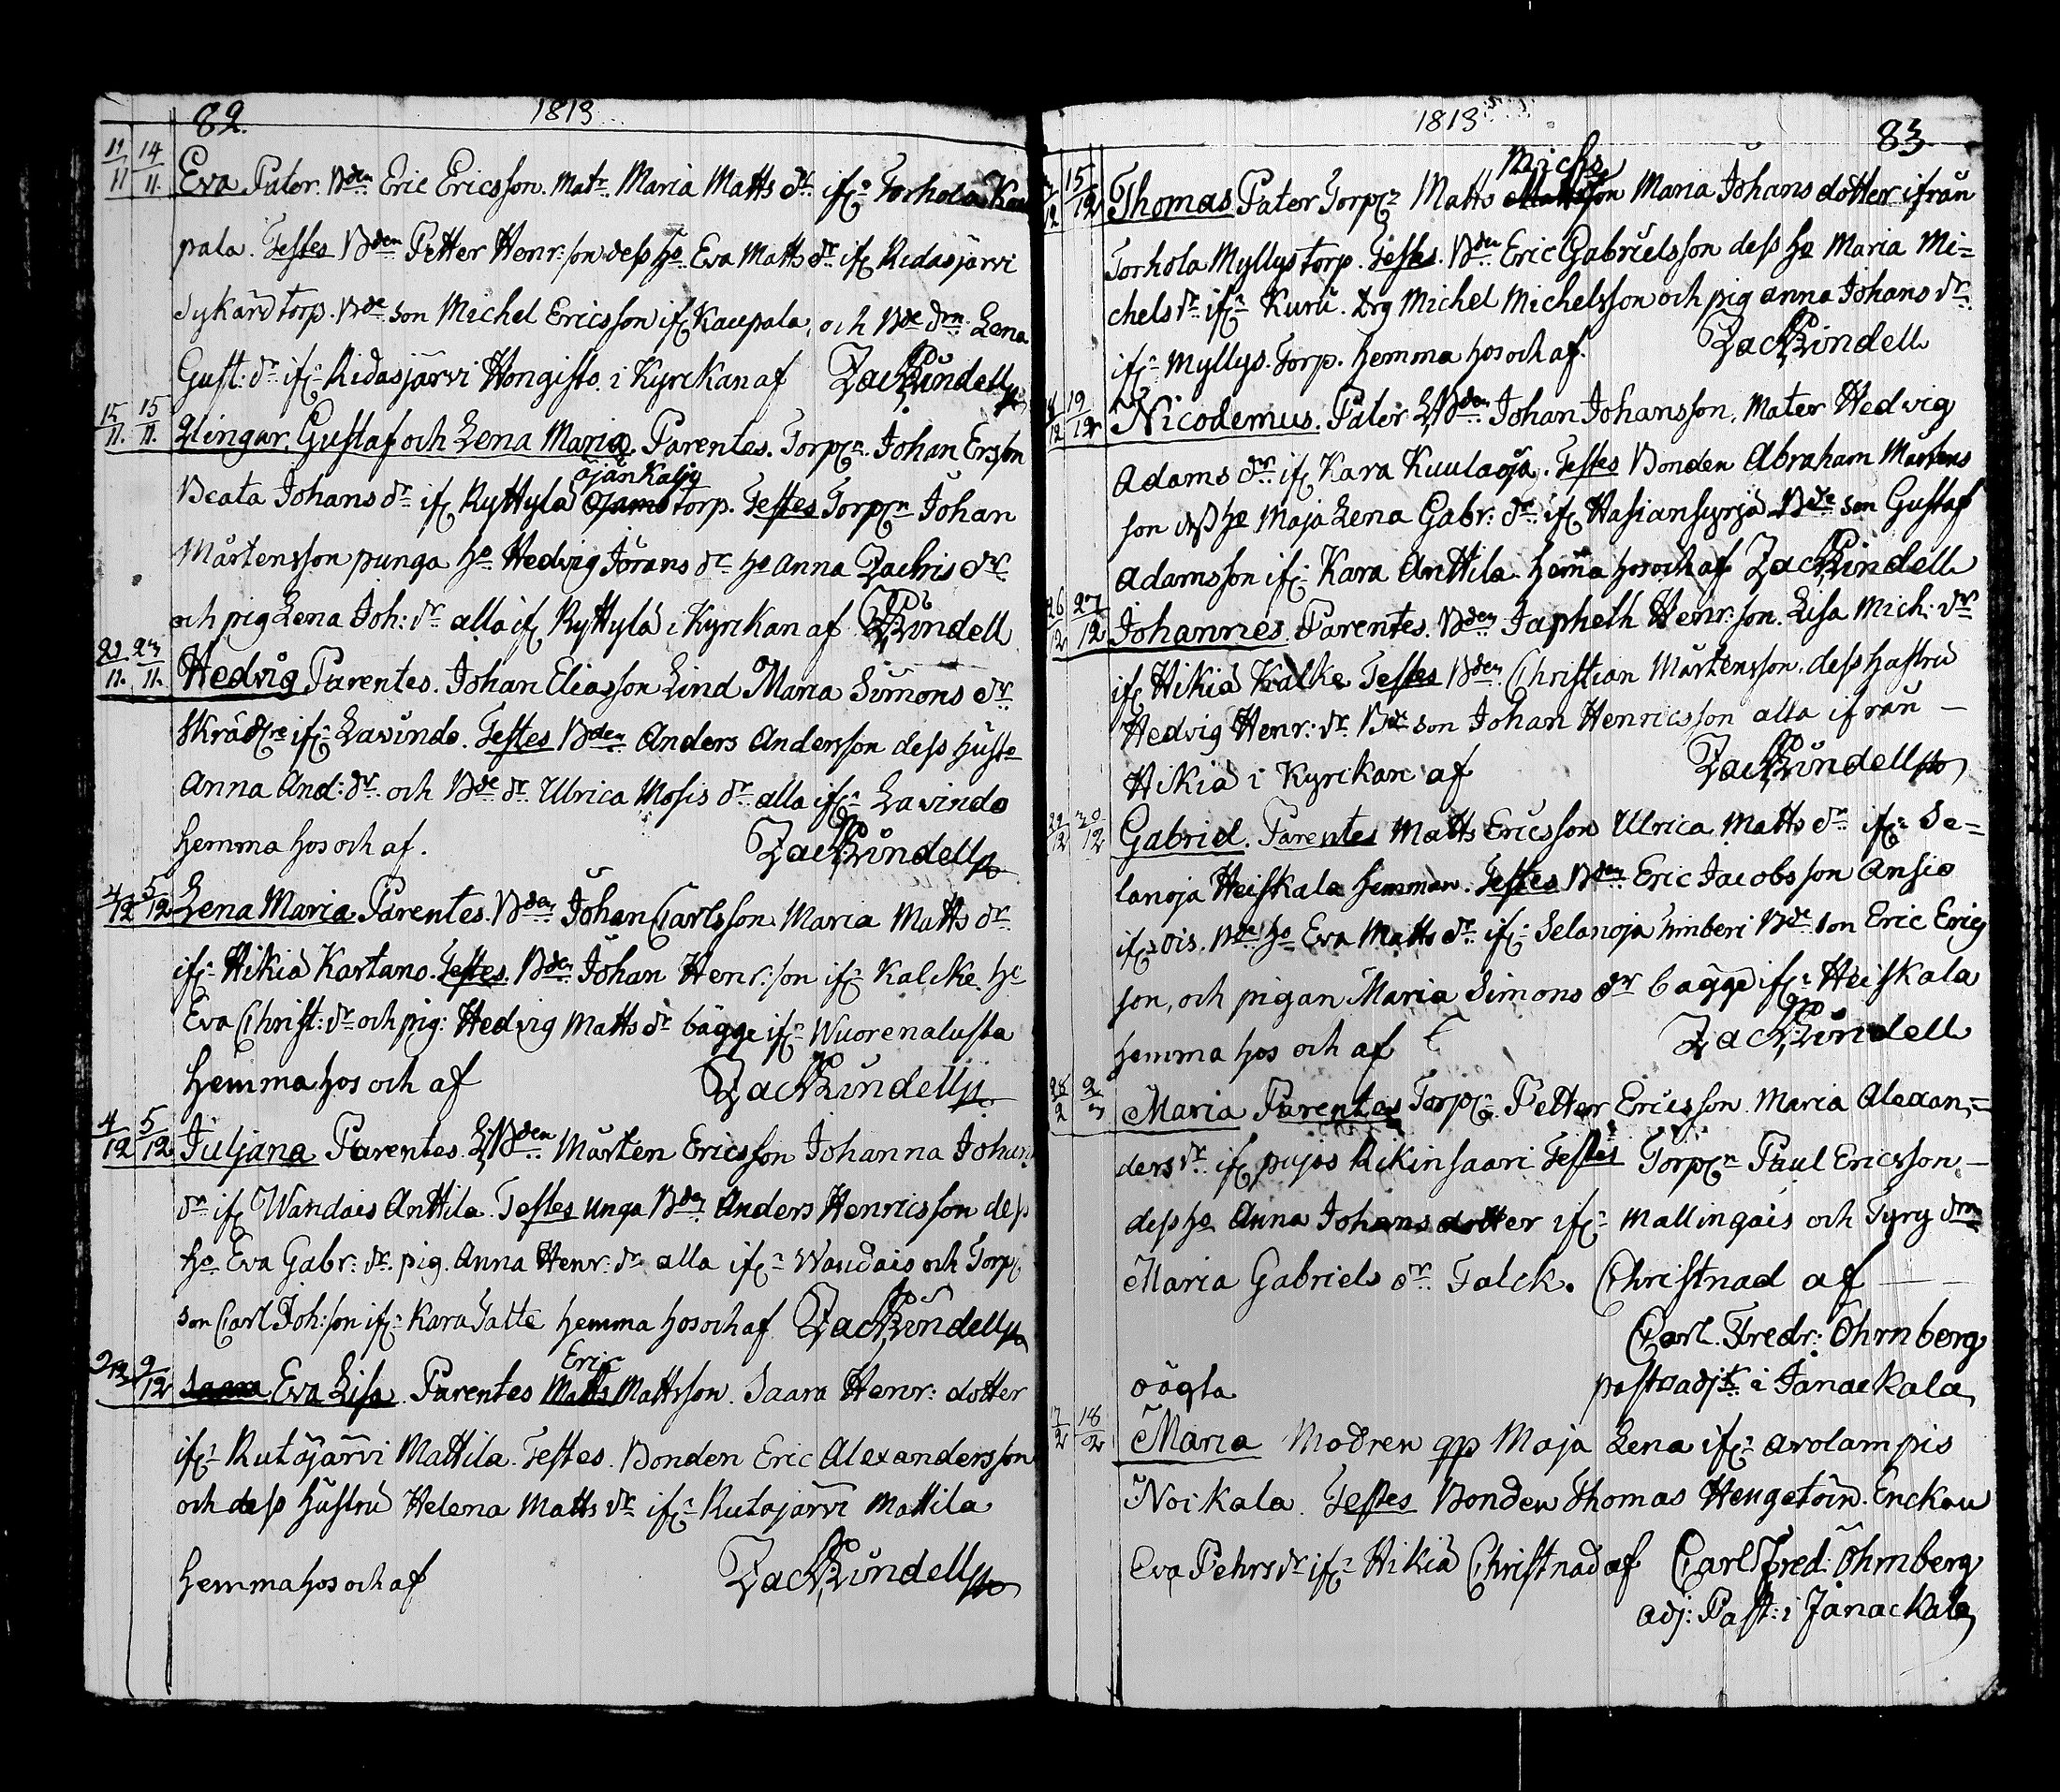 82. 1813
11/11 14/11. Eva Pater. Bden Eric Ericsson. Matr. Maria Matts dr. ifr. Torhola Kau
pala. Testes Bden Petter Henr: son dess ho Eva Matts dr. ifr Ridasjärvi
torp. Bde son Michel Ericsson ifr Kaupala, och Bde drn. Lena
Gust: dr. ifr. Ridasjärvi Hongisto. i Kyrckan af Zach Lindell
15/11. 15/11. Tvlingar. Gustaf och Lena Maria. Parentes. Torpr. Johan Ersson
Beata Johans dr ifr Ryttylä ojänkalju torp. Testes Torpr Johan
Mårtensson punga ho Hedvig Jörans dr ho Anna Zachris dr.
och pig Lena Joh: dr alla ifr Ryttylä i Kyrckan af Z Lindell
22/11. 23/11. Hedvig Parentes. Johan Eliasson Lind Maria Simons dr.
Skräd:re ifr. Lavindo. Testes Bden Anders Andersson dess Hust.
Anna And: dr. och Bde dr. Ulrica Mosis dr. alla ifr. Lavindo
hemma hos och af. Zach Lindell
4/12 5/12 Lena Maria Parentes. Bden Johan Carlsson Maria Matts dr.
ifr. Hikiä Kartano. Testes. Bden Johan Henr: son ifr. Kalcke ho
Eva Christ: dr. och pig: Hedvig Matts dr bägge ifr. Wuorenalusta
hemma hos och af Zach Lindell
4/12 5/12 Juljana Parentes. LBden Mårten Ericsson Johanna Johan
dr. ifr Wandais Anttila. Testes unga Bden Anders Henricsson dess
ho Eva Gabr: dr. pig. Anna Henr: dr. alla ifr. Wandais och Torp.
son Carl Joh: son ifr. Kara hemma hos och af Zach Lindell
9/12 Saara Eva Lisa. Parentes Matts Eric Mattsson. Saara Henr: dotter
ifr. Rutajärvi Mattila. Testes. Bonden Eric Alexandersson
och dess Hustru Helena Matts dr. ifr. Rutajärvi Mattila
hemma hos och af Zach Lindell
1813 83.
Michs
15/12 Thomas Pater Torpr Matts Mattsson Maria Johans dotter ifrån
Torhola Myllys torp. Testes. Bden Eric Gabrielsson dess ho Maria Mi=
chels dr. ifr. Kuru. drg Michel Michelsson och pig anna Johans dr.
ifr. Myllys. Torp. hemma hos och af. Zach Lindell
19/12 Nicodemus. Pater LBden Johan Johansson. Mater Hedvig
Adams dr. ifr. Kara Kuulaoja. Testes Bonden Abraham Mårtens
son dess ho Maja Lena Gabr: dr. ifr. Hasiansyrjä Bde son Gustaf
Adamsson ifr. Kara Anttila. hemma hos och af Zach Lindell
26/12 27/12 Johannes. Parentes. Bden Japheth Henr: son. Lisa Mich: dr.
ifr Hikiä Kalke Testes Bden. Christian Mårtensson. dess hustru
Hedvig Henr: dr. Bde son Johan Henricsson alla ifrån —
Hikiä i Kyrckan af Zach Lindell
29/12 30/12 Gabriel. Parentes Matts Ericsson Ulrica Matts dr. ifr. Se=
länoja Heiskala hemman. Testes Bden Eric Jacobsson Ansio
ifr. Ois. Bde ho Eva Matts dr. ifr. Selanoja Timberi Bde son Eric Erics
son, och pigan Maria Simons dr bägge ifr. Heiskala
hemma hos och af Zach Lindell
28/2 2/3 Maria Parentes Torpr. Petter Ericsson. Maria Alexan=
ders dr. ifr. pujos Rikinsaari Testes Torpr Paul Ericsson —
dess ho Anna Johans dotter ifr. Mallingais och Tyry drn
Maria Gabriels dr. Falck. Christnad af — —
Carl. Fredr: Öhrnberg
oägta past: adjt: i Janackala
17/2 18/2 Maria Modren qp Maja Lena ifr. Avolampis
Noikala. Testes Bonden Thomas Hengetöin. Enckan
Eva Pehrs dr. ifr. Hikiä Christnad af Carl Fred: Öhrnberg
adj: Past: i Janackala